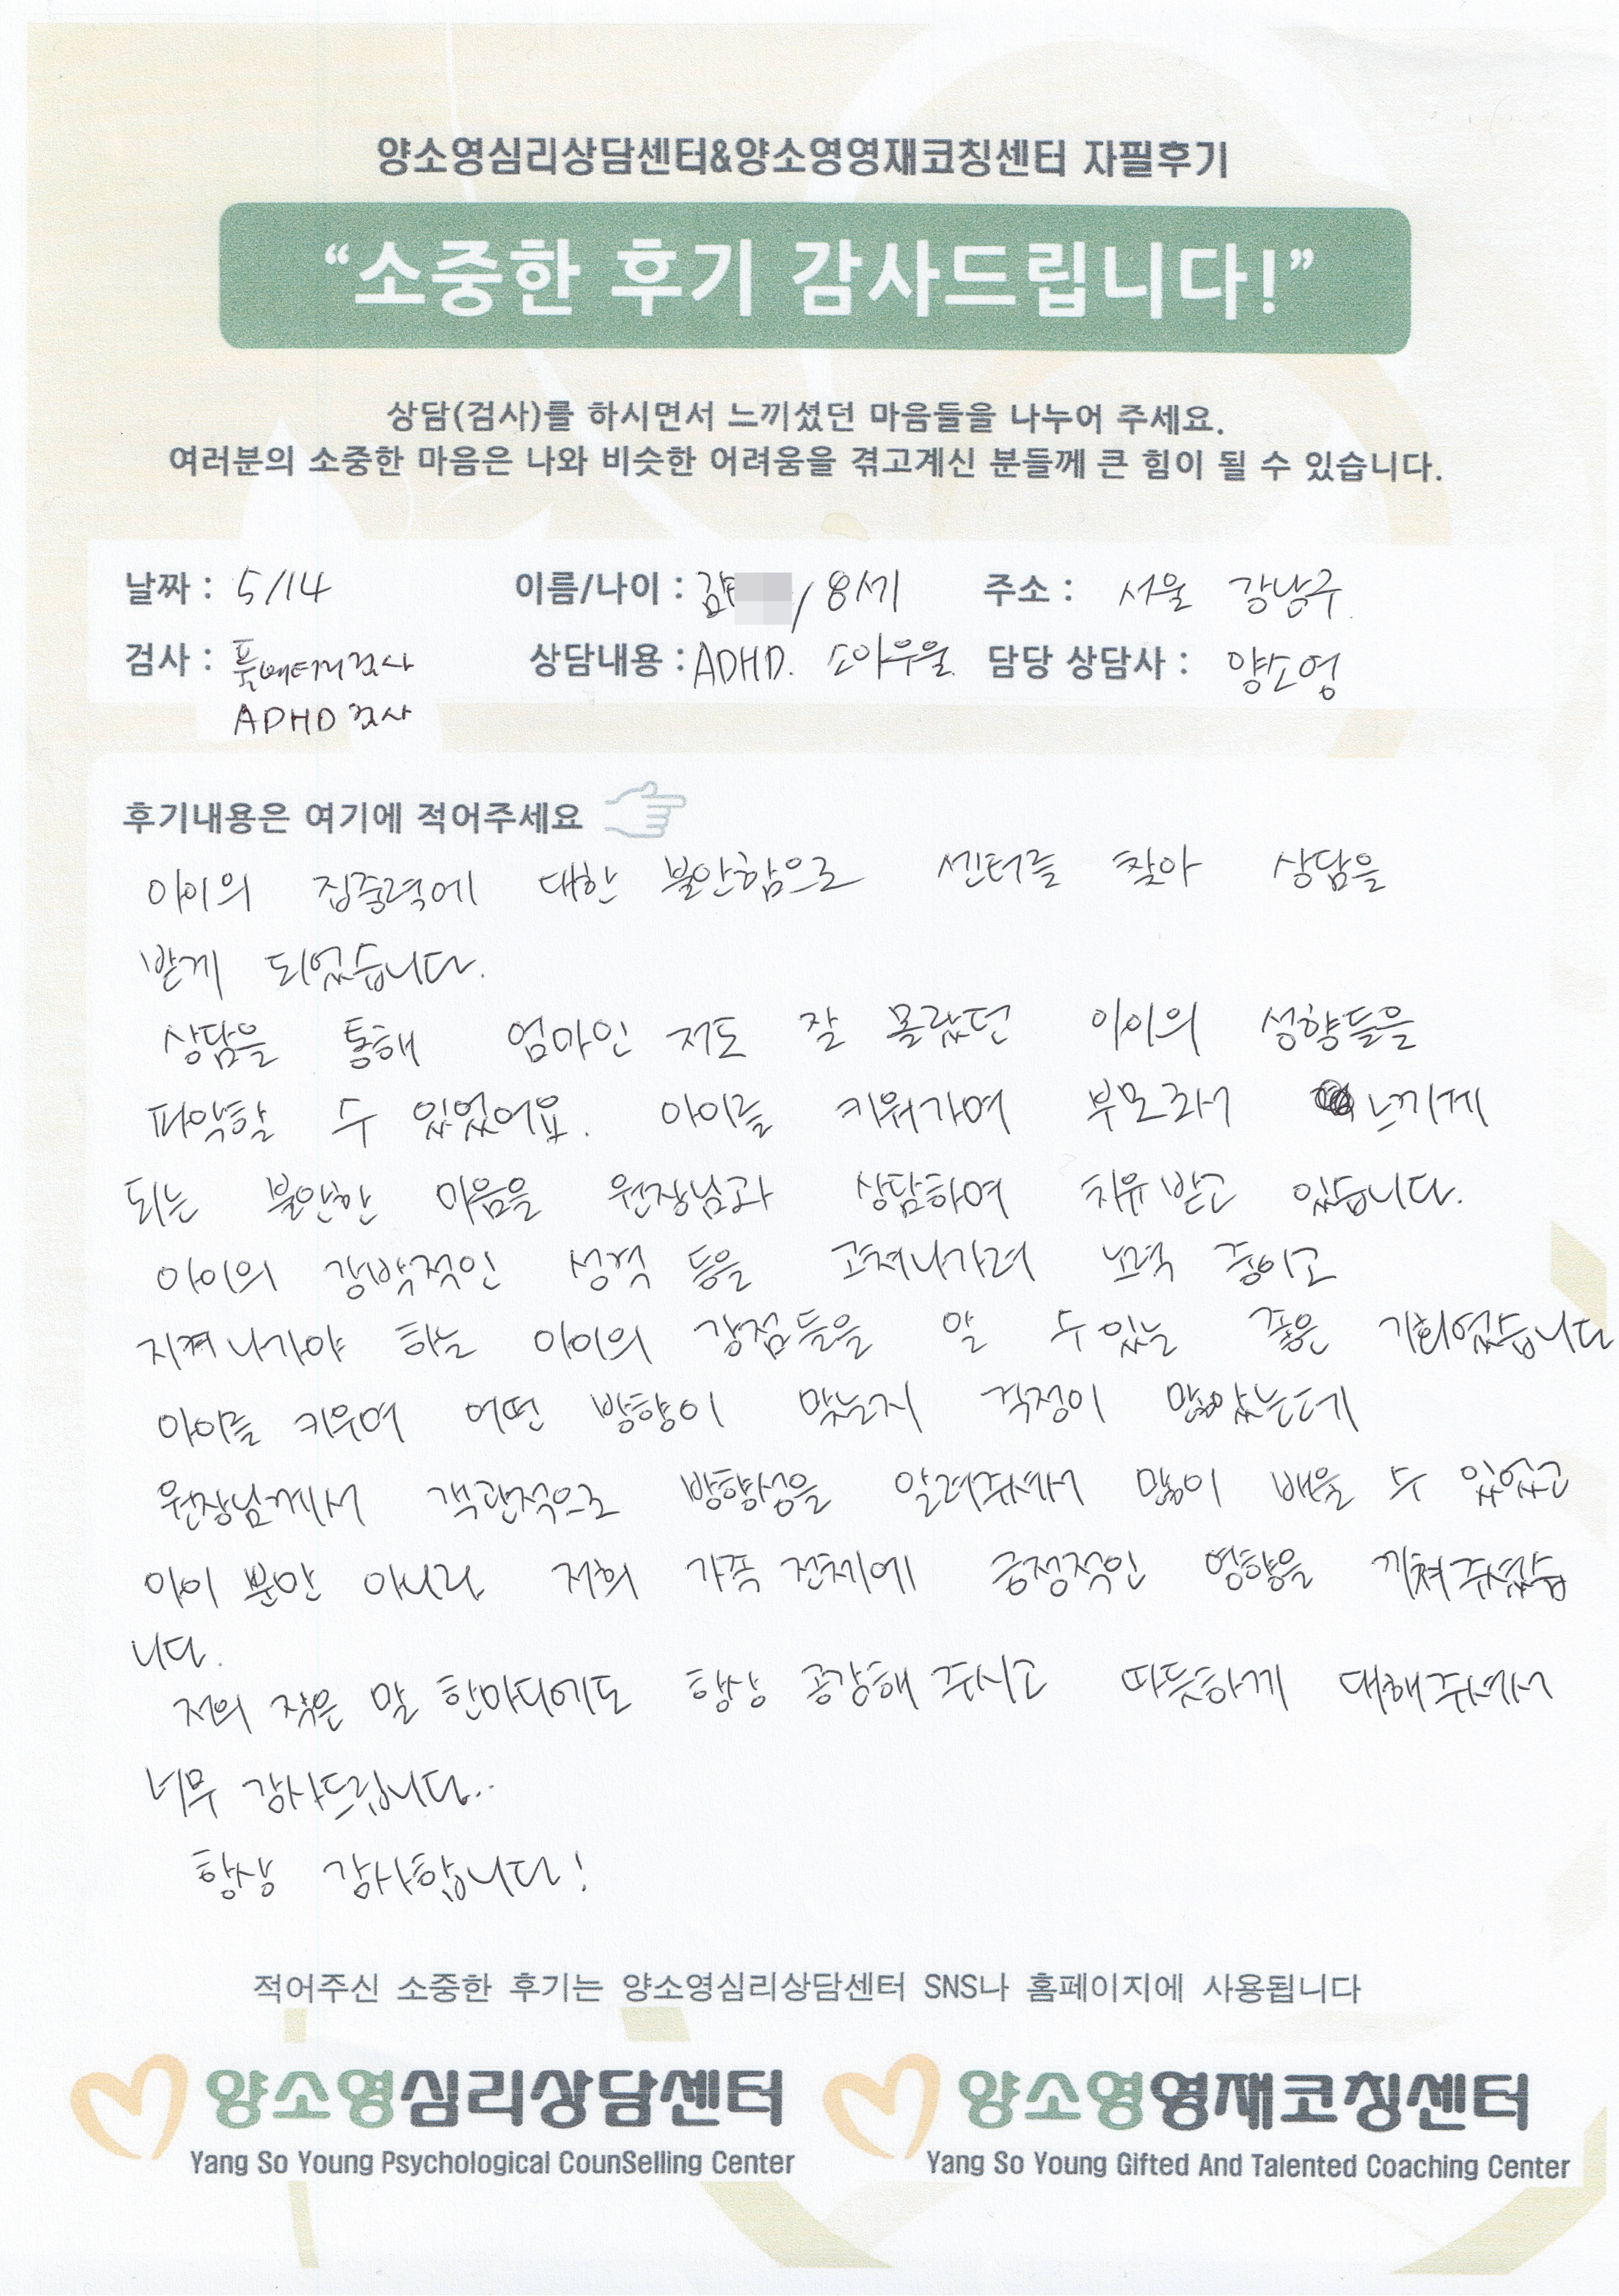 양소영심리상담센터&양소영영재코칭센터 자필후기
“소중한 후기 감사드립니다!”
상담(검사)를 하시면서 느끼셨던 마음들을 나누어 주세요.
여러분의 소중한 마음은 나와 비슷한 어려움을 겪고계신 분들께 큰 힘이 될 수 있습니다.
날짜 : 5/14 이름/나이 : 김 / 8세 주소 : 서울 강남구.
검사 : 풀배터리검사 상담내용 : ADHD. 소아우울. 담당 상담사 : 양소영
ADHD 검사
후기내용은 여기에 적어주세요
아이의 집중력에 대한 불안함으로 센터를 찾아 상담을
받게 되었습니다.
상담을 통해 엄마인 저도 잘 몰랐던 아이의 성향들을
파악할 수 있었어요. 아이를 키워가며 부모로서 느끼게
되는 불안한 마음을 원장님과 상담하며 치유 받고 있습니다.
아이의 강박적인 성격 등을 고쳐나가려 노력 중이고
지켜 나가야 하는 아이의 강점들을 알 수 있는 좋은 기회였습니다
아이를 키우며 어떤 방향이 맞는지 걱정이 많았는데
원장님께서 객관적으로 방향성을 알려주셔서 많이 배울 수 있었고
아이 뿐만 아니라 저희 가족 전체에 긍정적인 영향을 끼쳐주셨습
니다.
저의 작은 말 한마디에도 항상 공감해 주시고 따뜻하게 대해주셔서
너무 감사드립니다..
항상 감사합니다!
적어주신 소중한 후기는 양소영심리상담센터 SNS나 홈페이지에 사용됩니다
양소영심리상담센터 양소영영재코칭센터
Yang So Young Psychological CounSelling Center Yang So Young Gifted And Talented Coaching Center